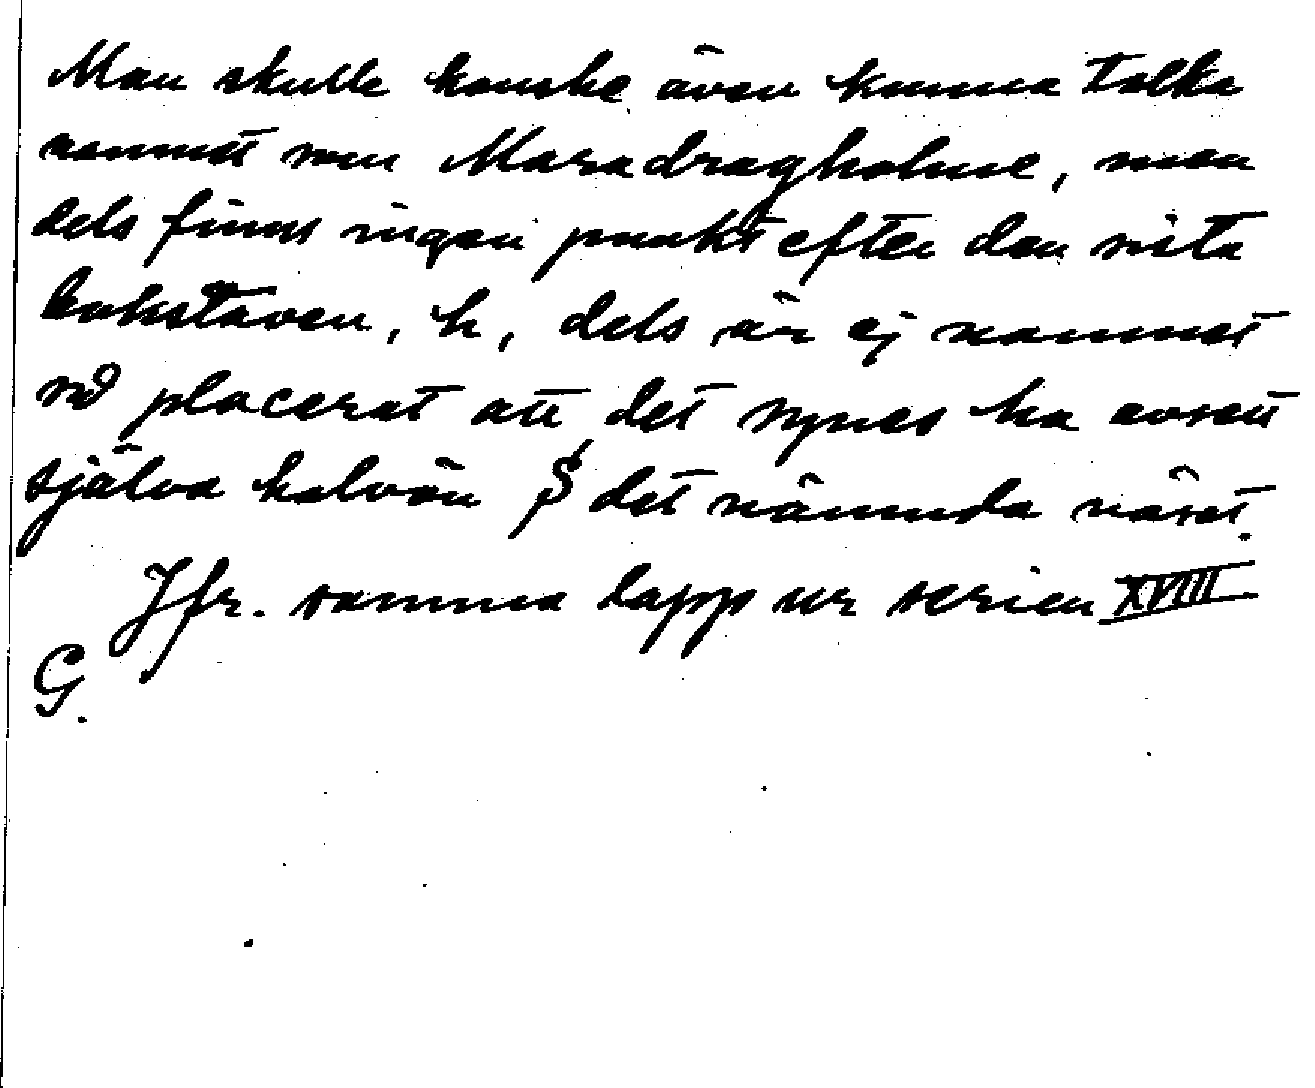 Man skulle kanske även kunna tolka
namnet som Maradragholme, men
dels finns ingen punkt efter den sista
bokstaven, h, dels är ej namnet
så placerat att det synes ha avsett
själva halvön på det nämnda näset.
Jfr. samma lapp ur serien XVIII
G.